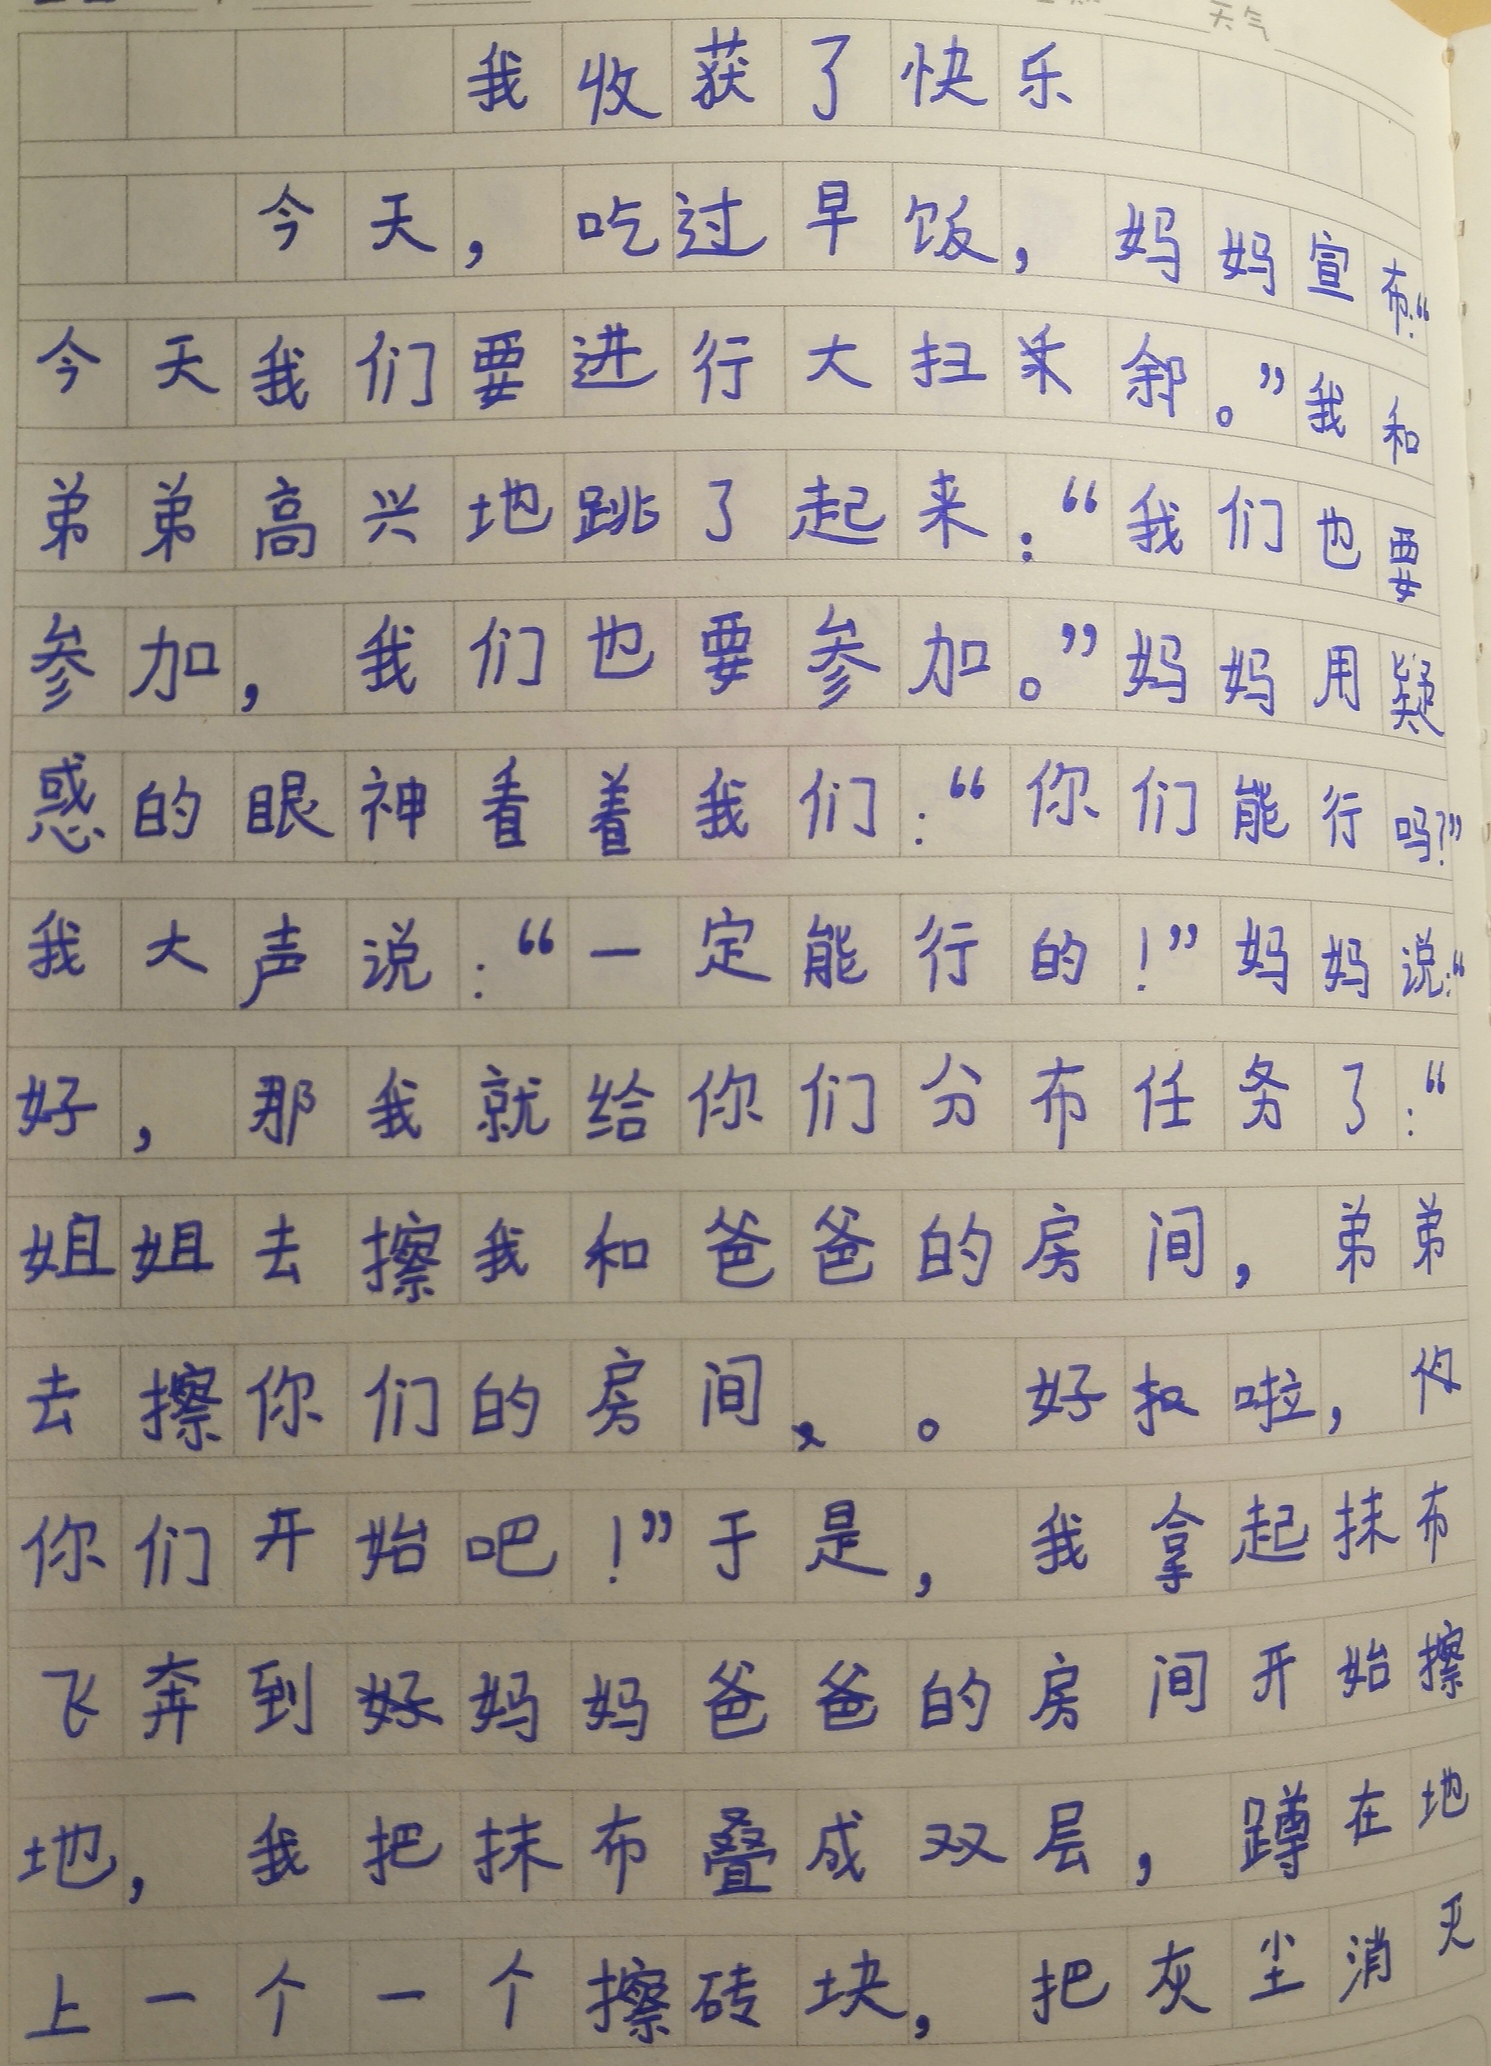 天气
我收获了快乐
今天，吃过早饭，妈妈宣布：“
今天我们要进行大扫除。”我和
弟弟高兴地跳了起来：“我们也要
参加，我们也要参加。”妈妈用疑
惑的眼神看着我们：“你们能行吗？”
我大声说：“一定能行的！”妈妈说：“
好，那我就给你们分布任务了：“
姐姐去擦我和爸爸的房间，弟弟
去擦你们的房间。好啦，
你们开始吧！”于是，我拿起抹布
飞奔到妈妈爸爸的房间开始擦
地，我把抹布叠成双层，蹲在地
上一个一个擦砖块，把灰尘消灭